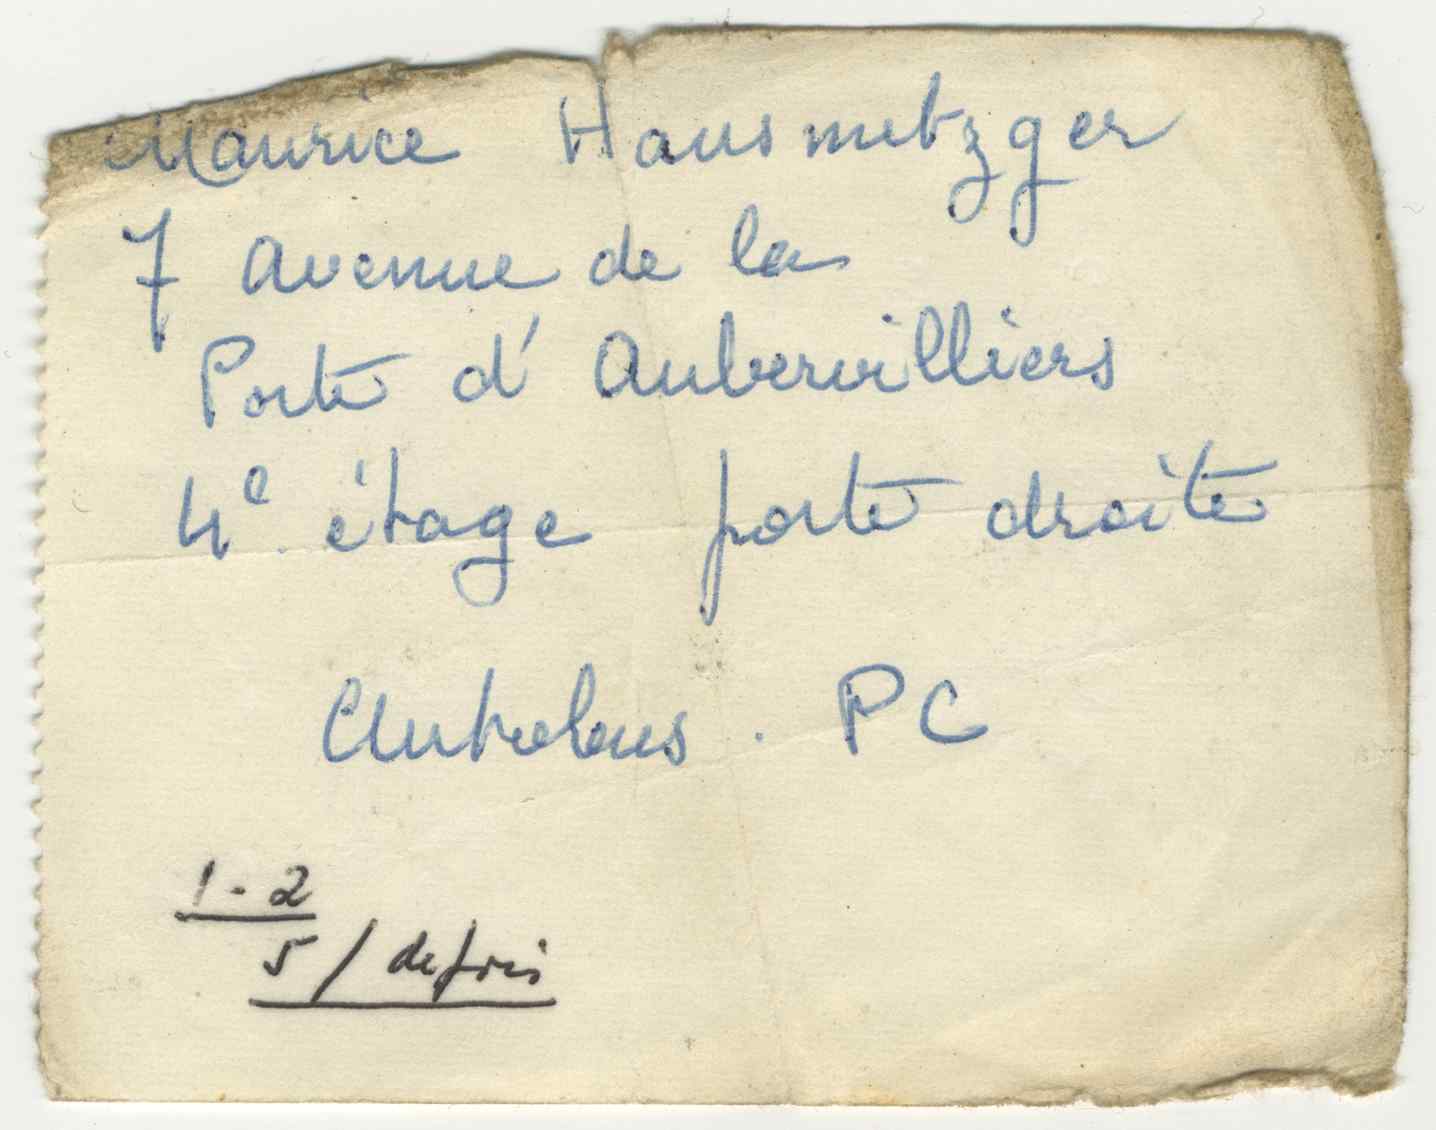 Maurice Hausmetzger
7 avenue de la
Porte d'Aubervilliers
4e étage porte droite
Autobus . PC
1-2
5 /